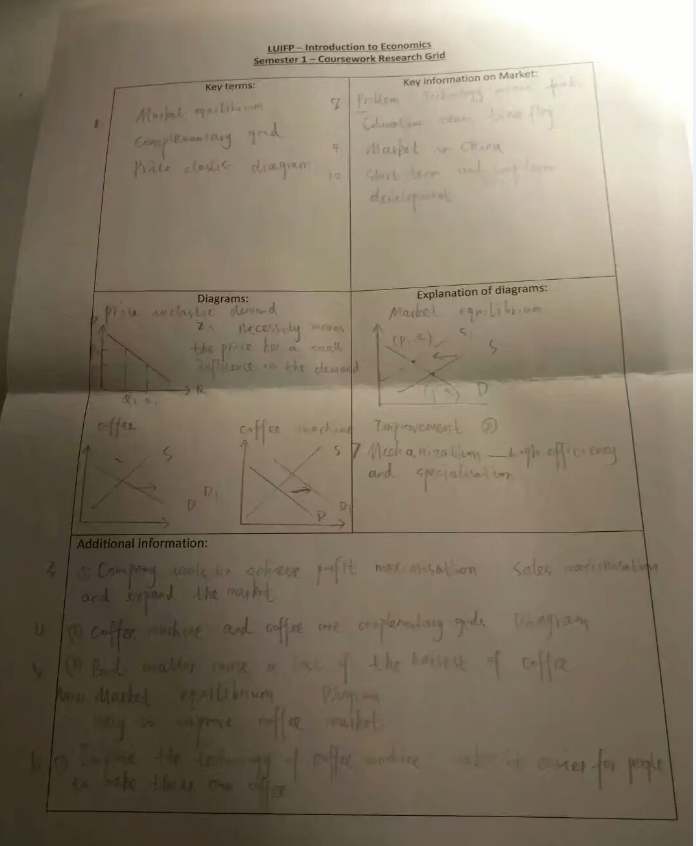 LUIFP – Introduction to Economics
Semester 1 – Coursework Research Grid
Key terms:
Market equilibrium
Complementary good
Price elastic diagram
Key information on Market:
8 Problem Technology means
Education
9 Market in China
10 Short term and long term
development
Diagrams:
Price inelastic demand
2. necessity means
the price has a small
influence on the demand
Coffee
S
D D1
Coffee machine
S
D D1
Explanation of diagrams:
Market equilibrium
S1
S
D
Improvement ②
7 Mechanization — high efficiency
and specialisation
Additional information:
3 ① Company wants to achieve profit maximisation Sales maximisation
and expand the market
Coffee machine and coffee are complementary goods Diagram
Bad weather cause a loss of the harvest of coffee
Market equilibrium Diagram
improve coffee market
Improve the technology of coffee machine make it easier for people
to make their own coffee